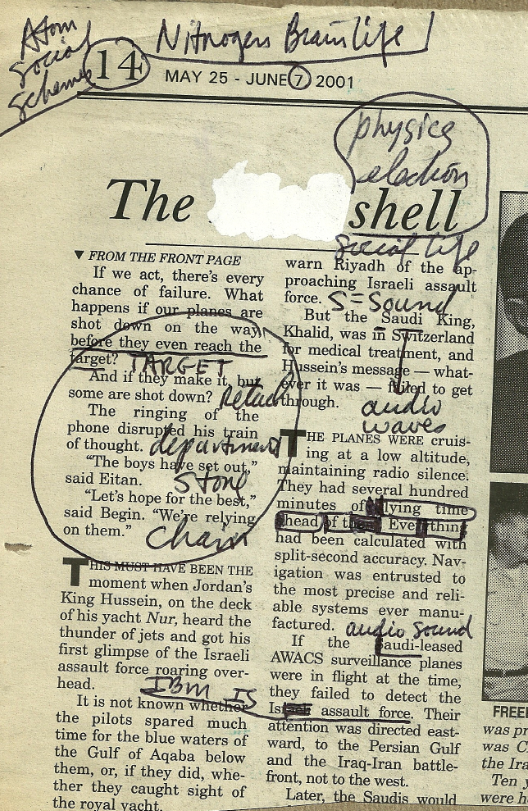 Atom
social
schemes
Nitrogen Brain life
14
MAY 25 - JUNE 7 2001
physics
election
The shell
social life
▼ FROM THE FRONT PAGE
If we act, there's every
chance of failure. What
happens if our planes are
shot down on the way
before they even reach the
target? TARGET
And if they make it, but
some are shot down?
The ringing of the
phone disrupted his train
of thought. department
"The boys have set out,"
said Eitan. Stone
"Let's hope for the best,"
said Begin. "We're relying
on them." Chain
THIS MUST HAVE BEEN THE
moment when Jordan's
King Hussein, on the deck
of his yacht Nur, heard the
thunder of jets and got his
first glimpse of the Israeli
assault force roaring over-
head.
IBM IS
It is not known whether
the pilots spared much
time for the blue waters of
the Gulf of Aqaba below
them, or, if they did, whe-
ther they caught sight of
the royal yacht.
warn Riyadh of the ap-
proaching Israeli assault
force. S=Sound
But the Saudi King,
Khalid, was in Switzerland
for medical treatment, and
Hussein's message — what-
ever it was — failed to get
through. audio
waves
THE PLANES WERE cruis-
ing at a low altitude,
maintaining radio silence.
They had several hundred
minutes of flying time
ahead of Everything
had been calculated with
split-second accuracy. Nav-
igation was entrusted to
the most precise and reli-
able systems ever manu-
factured. audio sound
If the Saudi-leased
AWACS surveillance planes
were in flight at the time,
they failed to detect the
assault force. Their
attention was directed east-
ward, to the Persian Gulf
and the Iraq-Iran battle-
front, not to the west.
Later, the Saudis would
FREE
was pr
was C
the Ira
Ten y
were h